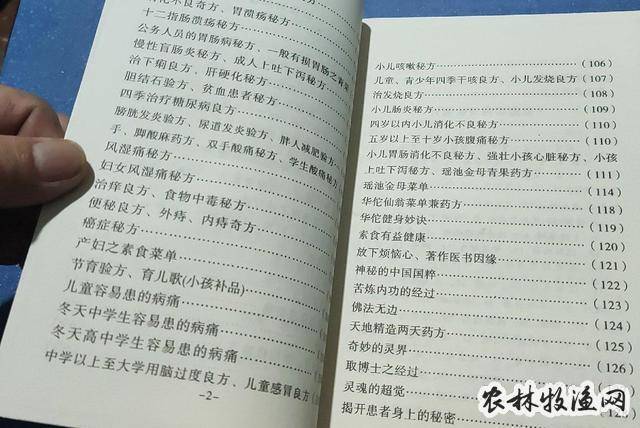 消化不良奇方、胃溃疡秘方
十二指肠溃疡秘方
公务人员的胃肠病秘方、一般有损胃肠之青菜
慢性盲肠炎秘方、成人上吐下泻秘方
治下痢良方、肝硬化秘方
胆结石验方、贫血患者秘方
四季治疗糖尿病良方
膀胱发炎验方、尿道发炎验方、胖人减肥验方
手、脚酸麻药方、双手酸痛秘方、学生酸痛
风湿痛秘方
妇女风湿痛秘方
治痒良方、食物中毒秘方
便秘良方、外痔、内痔奇方
癌症秘方
产妇之素食菜单
节育验方、育儿歌(小孩补品)
儿童容易患的病痛
冬天中学生容易患的病痛
冬天高中学生容易患的病痛
中学以上至大学用脑过度良方、儿童感冒良方
-2-
小儿咳嗽秘方 (106)
儿童、青少年四季干咳良方、小儿发烧良方 (107)
治发烧良方 (108)
小儿肠炎秘方 (109)
四岁以内小儿消化不良秘方 (110)
五岁以上至十岁小孩腹痛秘方 (110)
小儿胃肠消化不良秘方、强壮小孩心脏秘方、小孩
上吐下泻秘方、瑶池金母青果药方 (111)
瑶池金母菜单 (114)
华佗仙翁菜单兼药方 (118)
华佗健身妙诀 (119)
素食有益健康 (120)
放下烦恼心、著作医书因缘 (121)
神秘的中国国粹 (122)
苦炼内功的经过 (123)
佛法无边 (124)
天地精造两天药方 (125)
奇妙的灵界 (126)
取博士之经过
灵魂的超觉
揭开患者身上的秘密
农林牧渔网